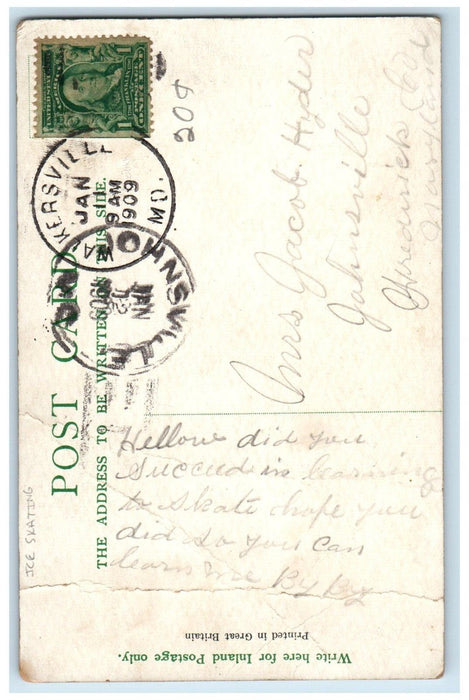 209
UNITED STATES OF AMERICA
FRANKLIN
ONE CENT
WALKERSVILLE
JAN
11
9 AM
1909
MD.
JOHNSVILLE
JAN
12
1909
MD.
POST CARD
THE ADDRESS TO BE WRITTEN ON THIS SIDE.
Mrs Jacob Hyder
Johnsville
Frederick Co
Maryland
Hellow did you
succeed in learning
to skate hope you
did so you can
learn me By By
ICE SKATING
Printed in Great Britain
Write here for Inland Postage only.